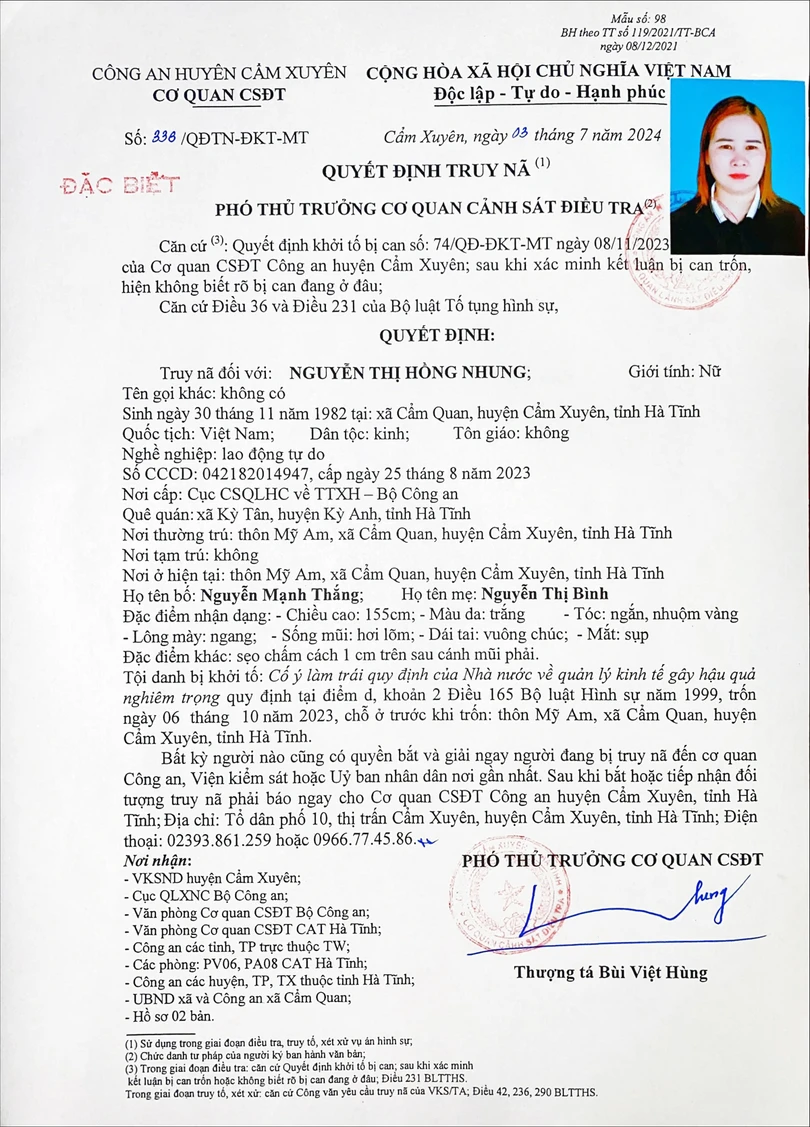 Mẫu số: 98
BH theo TT số 119/2021/TT-BCA
ngày 08/12/2021
CÔNG AN HUYỆN CẨM XUYÊN
CƠ QUAN CSĐT
CỘNG HÒA XÃ HỘI CHỦ NGHĨA VIỆT NAM
Độc lập - Tự do - Hạnh phúc
Số: 338 /QĐTN-ĐKT-MT
Cẩm Xuyên, ngày 03 tháng 7 năm 2024
ĐẶC BIỆT
QUYẾT ĐỊNH TRUY NÃ (1)
PHÓ THỦ TRƯỞNG CƠ QUAN CẢNH SÁT ĐIỀU TRA(2)
Căn cứ (3): Quyết định khởi tố bị can số: 74/QĐ-ĐKT-MT ngày 08/11/2023
của Cơ quan CSĐT Công an huyện Cẩm Xuyên; sau khi xác minh kết luận bị can trốn,
hiện không biết rõ bị can đang ở đâu;
Căn cứ Điều 36 và Điều 231 của Bộ luật Tố tụng hình sự,
QUYẾT ĐỊNH:
Truy nã đối với: NGUYỄN THỊ HỒNG NHUNG; Giới tính: Nữ
Tên gọi khác: không có
Sinh ngày 30 tháng 11 năm 1982 tại: xã Cẩm Quan, huyện Cẩm Xuyên, tỉnh Hà Tĩnh
Quốc tịch: Việt Nam; Dân tộc: kinh; Tôn giáo: không
Nghề nghiệp: lao động tự do
Số CCCD: 042182014947, cấp ngày 25 tháng 8 năm 2023
Nơi cấp: Cục CSQLHC về TTXH – Bộ Công an
Quê quán: xã Kỳ Tân, huyện Kỳ Anh, tỉnh Hà Tĩnh
Nơi thường trú: thôn Mỹ Am, xã Cẩm Quan, huyện Cẩm Xuyên, tỉnh Hà Tĩnh
Nơi tạm trú: không
Nơi ở hiện tại: thôn Mỹ Am, xã Cẩm Quan, huyện Cẩm Xuyên, tỉnh Hà Tĩnh
Họ tên bố: Nguyễn Mạnh Thắng; Họ tên mẹ: Nguyễn Thị Bình
Đặc điểm nhận dạng: - Chiều cao: 155cm; - Màu da: trắng - Tóc: ngắn, nhuộm vàng
- Lông mày: ngang; - Sống mũi: hơi lõm; - Dái tai: vuông chúc; - Mắt: sụp
Đặc điểm khác: sẹo chấm cách 1 cm trên sau cánh mũi phải.
Tội danh bị khởi tố: Cố ý làm trái quy định của Nhà nước về quản lý kinh tế gây hậu quả
nghiêm trọng quy định tại điểm d, khoản 2 Điều 165 Bộ luật Hình sự năm 1999, trốn
ngày 06 tháng 10 năm 2023, chỗ ở trước khi trốn: thôn Mỹ Am, xã Cẩm Quan, huyện
Cẩm Xuyên, tỉnh Hà Tĩnh.
Bất kỳ người nào cũng có quyền bắt và giải ngay người đang bị truy nã đến cơ quan
Công an, Viện kiểm sát hoặc Uỷ ban nhân dân nơi gần nhất. Sau khi bắt hoặc tiếp nhận đối
tượng truy nã phải báo ngay cho Cơ quan CSĐT Công an huyện Cẩm Xuyên, tỉnh Hà
Tĩnh; Địa chỉ: Tổ dân phố 10, thị trấn Cẩm Xuyên, huyện Cẩm Xuyên, tỉnh Hà Tĩnh; Điện
thoại: 02393.861.259 hoặc 0966.77.45.86.
Nơi nhận:
- VKSND huyện Cẩm Xuyên;
- Cục QLXNC Bộ Công an;
- Văn phòng Cơ quan CSĐT Bộ Công an;
- Văn phòng Cơ quan CSĐT CAT Hà Tĩnh;
- Công an các tỉnh, TP trực thuộc TW;
- Các phòng: PV06, PA08 CAT Hà Tĩnh;
- Công an các huyện, TP, TX thuộc tỉnh Hà Tĩnh;
- UBND xã và Công an xã Cẩm Quan;
- Hồ sơ 02 bản.
PHÓ THỦ TRƯỞNG CƠ QUAN CSĐT
Hưng
Thượng tá Bùi Việt Hùng
(1) Sử dụng trong giai đoạn điều tra, truy tố, xét xử vụ án hình sự;
(2) Chức danh tư pháp của người ký ban hành văn bản;
(3) Trong giai đoạn điều tra: căn cứ Quyết định khởi tố bị can; sau khi xác minh
kết luận bị can trốn hoặc không biết rõ bị can đang ở đâu; Điều 231 BLTTHS.
Trong giai đoạn truy tố, xét xử: căn cứ Công văn yêu cầu truy nã của VKS/TA; Điều 42, 236, 290 BLTTHS.